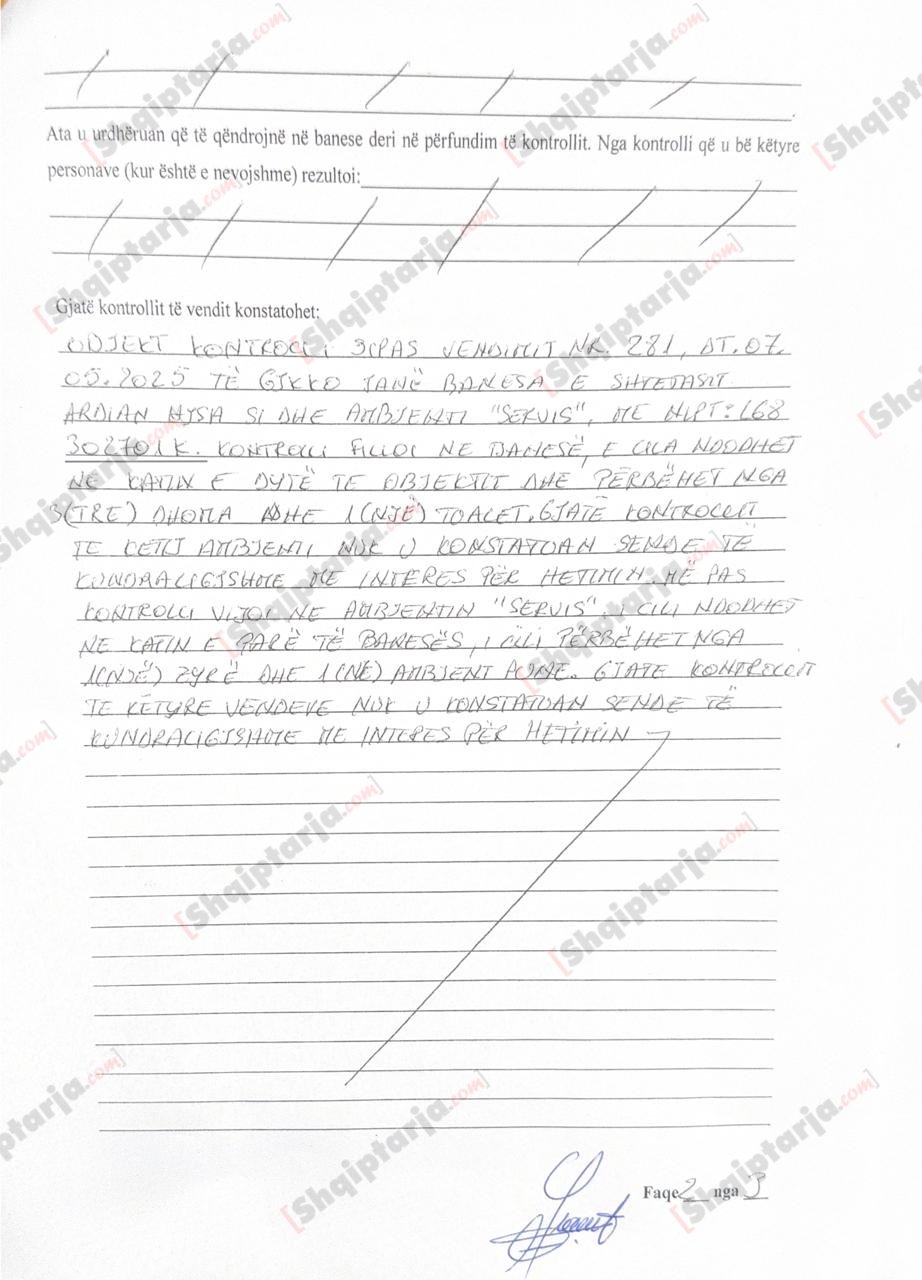 Ata u urdhëruan që të qëndrojnë në banese deri në përfundim të kontrollit. Nga kontrolli që u bë këtyre
personave (kur është e nevojshme) rezultoi:
Gjatë kontrollit të vendit konstatohet:
OBJEKT KONTROLLI SIPAS VENDIMIT NR 281, DT.07.
05.2025 TË GJKKO JANË BANESA E SHTETASIT
ARDIAN HYSA SI DHE AMBJENTI "SERVIS", ME NIPT: L68
302701K. KONTROLLI FILLOI NE BANESË, E CILA NDODHET
NE KATIN E DYTË TE OBJEKTIT DHE PËRBËHET NGA
3(TRE) DHOMA DHE 1(NJË) TOALET. GJATË KONTROLLIT
TE KETIJ AMBJENTI NUK U KONSTATUAN SENDE TË
KUNDRALIGJSHME ME INTERES PËR HETIMIN. MË PAS
KONTROLLI VIJOI NE AMBJENTIN "SERVIS", I CILI NDODHET
NE KATIN E PARË TË BANESËS, I CILI PËRBËHET NGA
1(NJË) ZYRË DHE 1(NË) AMBJENT PUNE. GJATE KONTROLLIT
TE KËTYRE VENDEVE NUK U KONSTATUAN SENDE TË
KUNDRALIGJSHME ME INTERES PËR HETIMIN
Faqe 2 nga 3
[Shqiptarja.com]